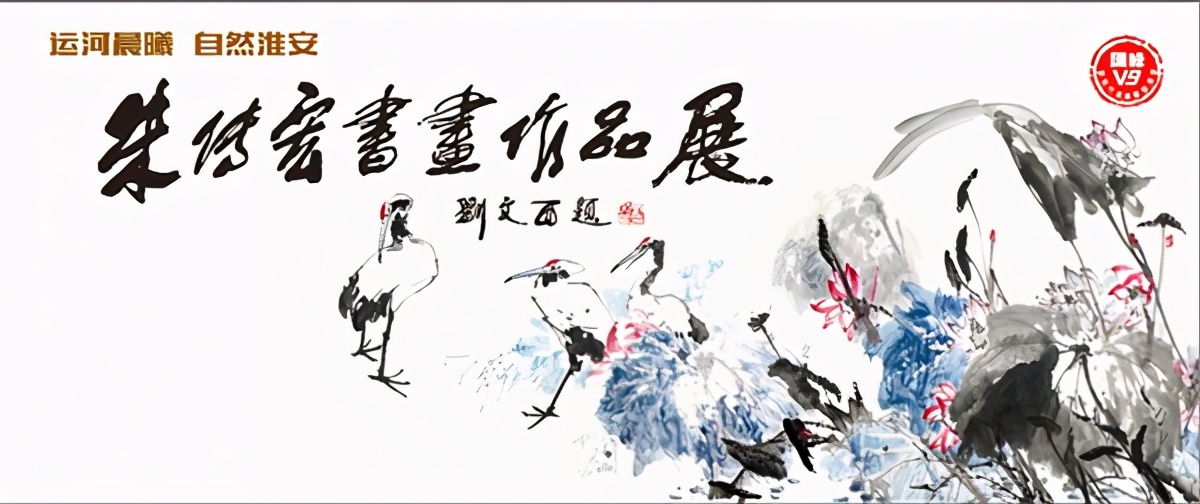 运河晨曦 自然淮安
朱传宏書畫作品展
劉文西题
V9